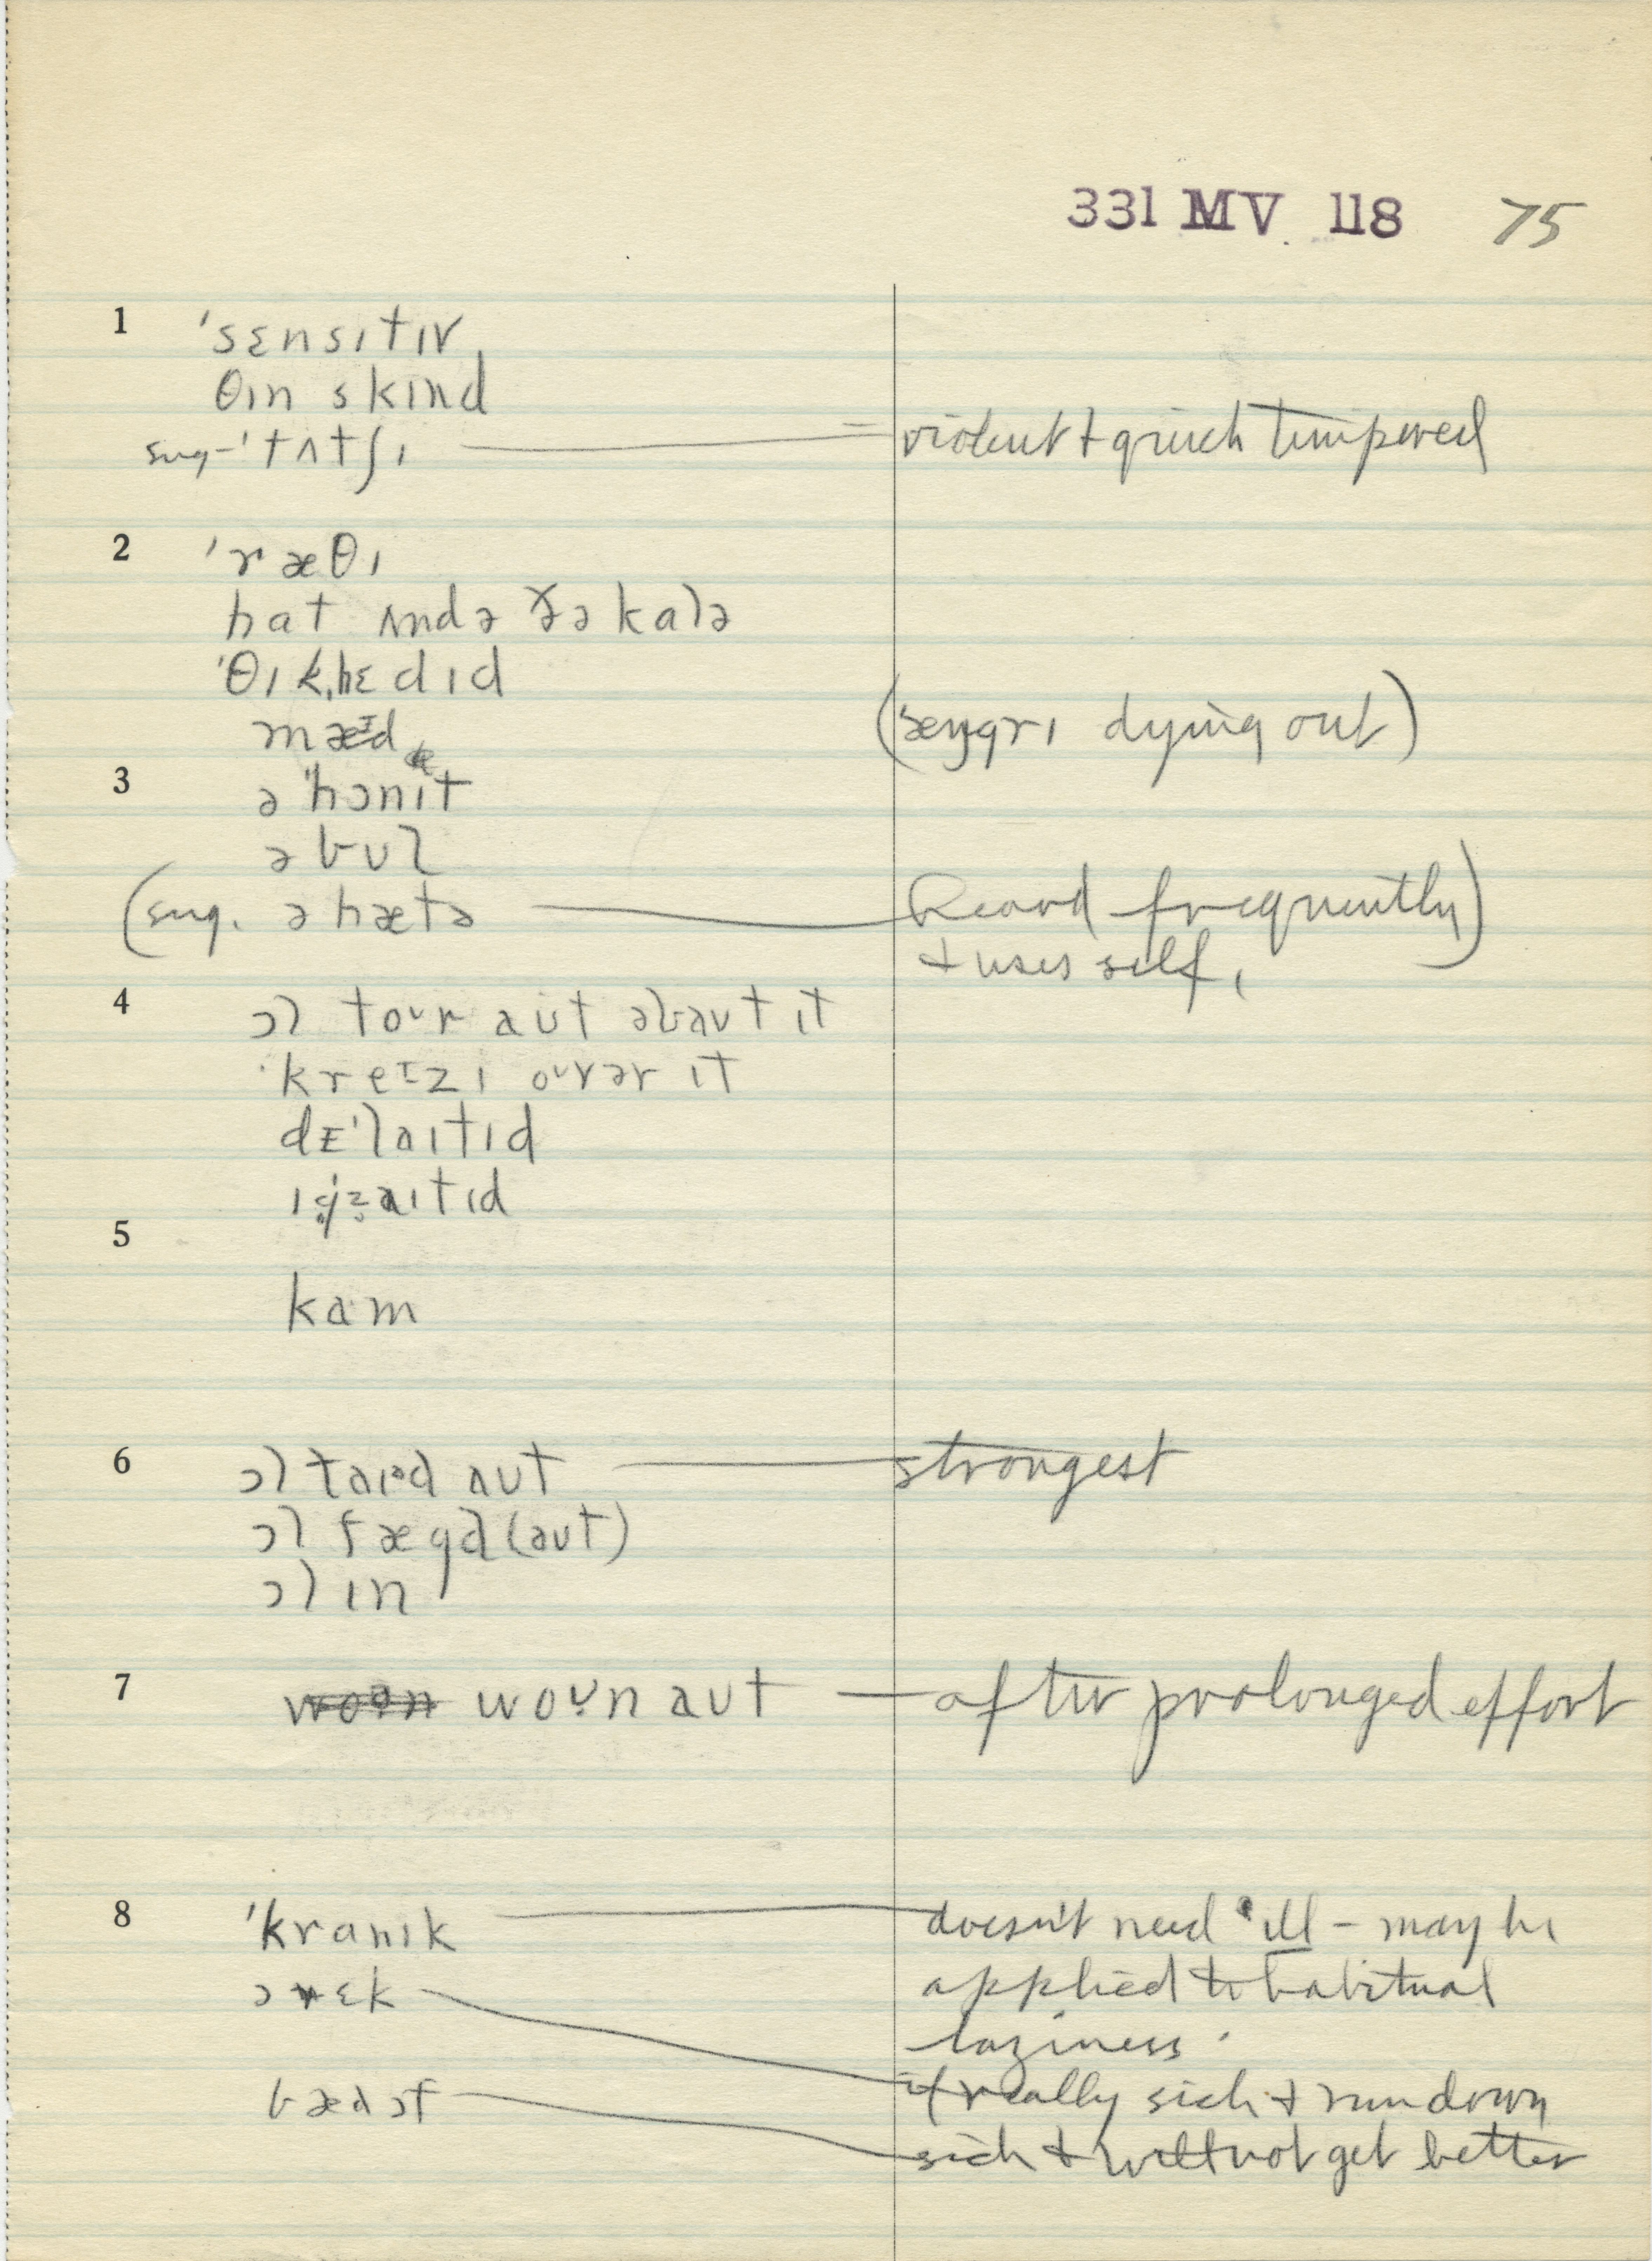 331 MV 118 75
1 'sɛnsıtıv
θın skınd
sug-'tʌtʃı — violent + quick tempered
2 'ræθı
hat ʌndə ðə kalə
'θık,hɛdıd
mæɪd ('æŋgrı dying out)
3 ə 'hɔnıt
ə bʊl
(sug. ə hætə — Heard frequently)
+ uses self,
4 ɔl toʊr aʊt əbaʊt ıt
'kreɪzı oʊvər ıt
dɪ'laıtıd
ıgzaıtıd
5
kam
6 ɔl taıəd aʊt — strongest
ɔl fægd (aʊt)
ɔl ın
7 woən woʊn aʊt — after prolonged effort
8 'kranık — doesn't need ill – may be
ə rɛk applied to habitual
laziness.
if really sick + run down
bæd ɔf sick + will not get better